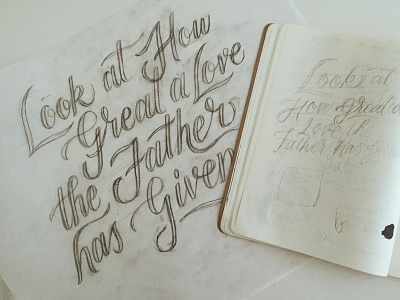 Look at How
Great a Love
the Father
has Given
Look at
How Great a
Love
Father Has